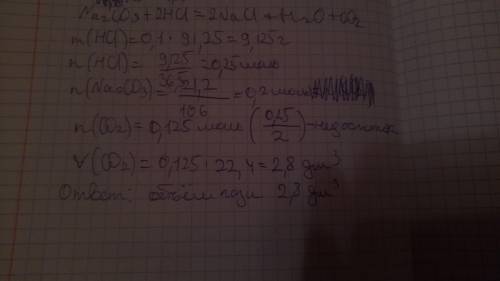 Na₂CO₃ + 2HCl = 2NaCl + H₂O + CO₂
m(HCl) = 0,1 · 91,25 = 9,125 г
n(HCl) = 9,125 / 36,5 = 0,25 моль
n(Na₂CO₃) = 21,2 / 106 = 0,2 моль
n(CO₂) = 0,125 моль (0,25 / 2)
V(CO₂) = 0,125 · 22,4 = 2,8 дм³
Ответ: объём 2,8 дм³